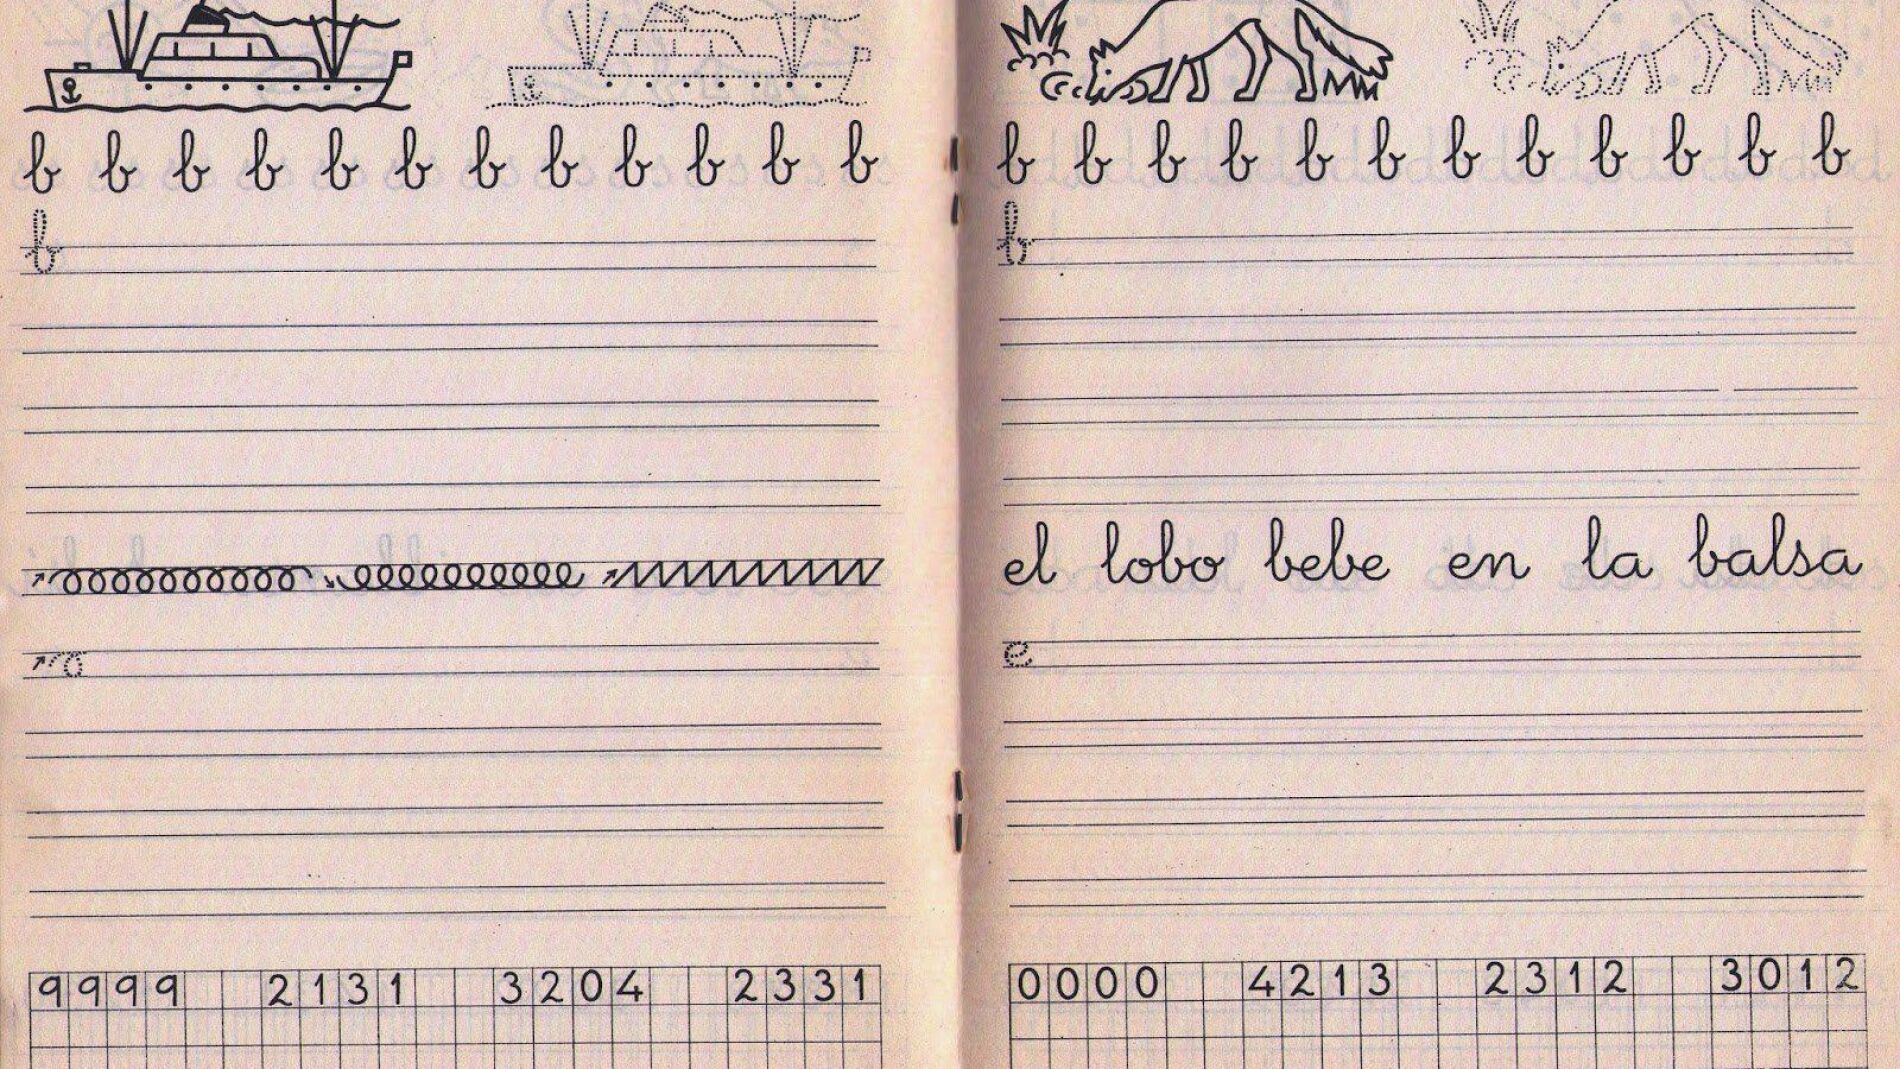 b b b b b b b b b b b b
b
9999 2131 3204 2331
b b b b b b b b b b b b
b
el lobo bebe en la balsa
e
0000 4213 2312 3012